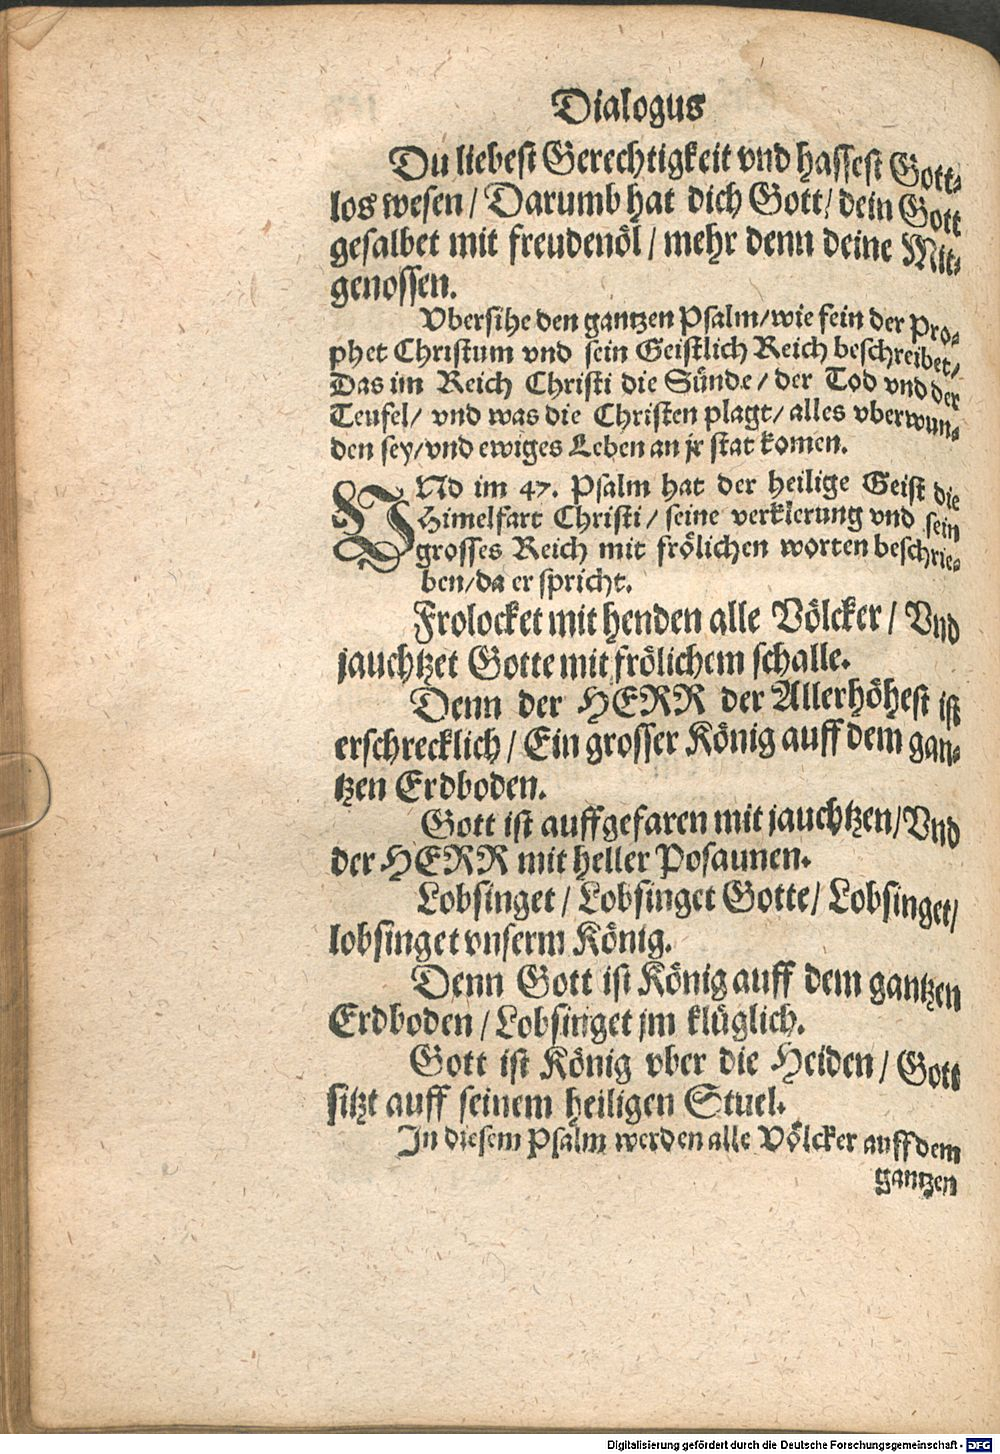 Dialogus
Du liebest Gerechtigkeit vnd hassest Gott-
los wesen / Darumb hat dich Gott / dein Gott
gesalbet mit freudenöl / mehr denn deine Mit-
genossen.
Vbersihe den gantzen Psalm / wie fein der Pro-
phet Christum vnd sein Geistlich Reich beschreibet /
Das im Reich Christi die Sünde / der Tod vnd der
Teufel / vnd was die Christen plagt / alles vberwun-
den sey / vnd ewiges Leben an jr stat komen.
VNd im 47. Psalm hat der heilige Geist die
Himelfart Christi / seine verklerung vnd sein
grosses Reich mit frölichen worten beschrie-
ben / da er spricht.
Frolocket mit henden alle Völcker / Vnd
jauchtzet Gotte mit frölichem schalle.
Denn der HERR der Allerhöhest ist
erschrecklich / Ein grosser König auff dem gan-
tzen Erdboden.
Gott ist auffgefaren mit jauchtzen / Vnd
der HERR mit heller Posaunen.
Lobsinget / Lobsinget Gotte / Lobsinget /
lobsinget vnserm König.
Denn Gott ist König auff dem gantzen
Erdboden / Lobsinget jm klüglich.
Gott ist König vber die Heiden / Gott
sitzt auff seinem heiligen Stuel.
In diesem Psalm werden alle Völcker auff dem
gantzen
Digitalisierung gefördert durch die Deutsche Forschungsgemeinschaft - DFG